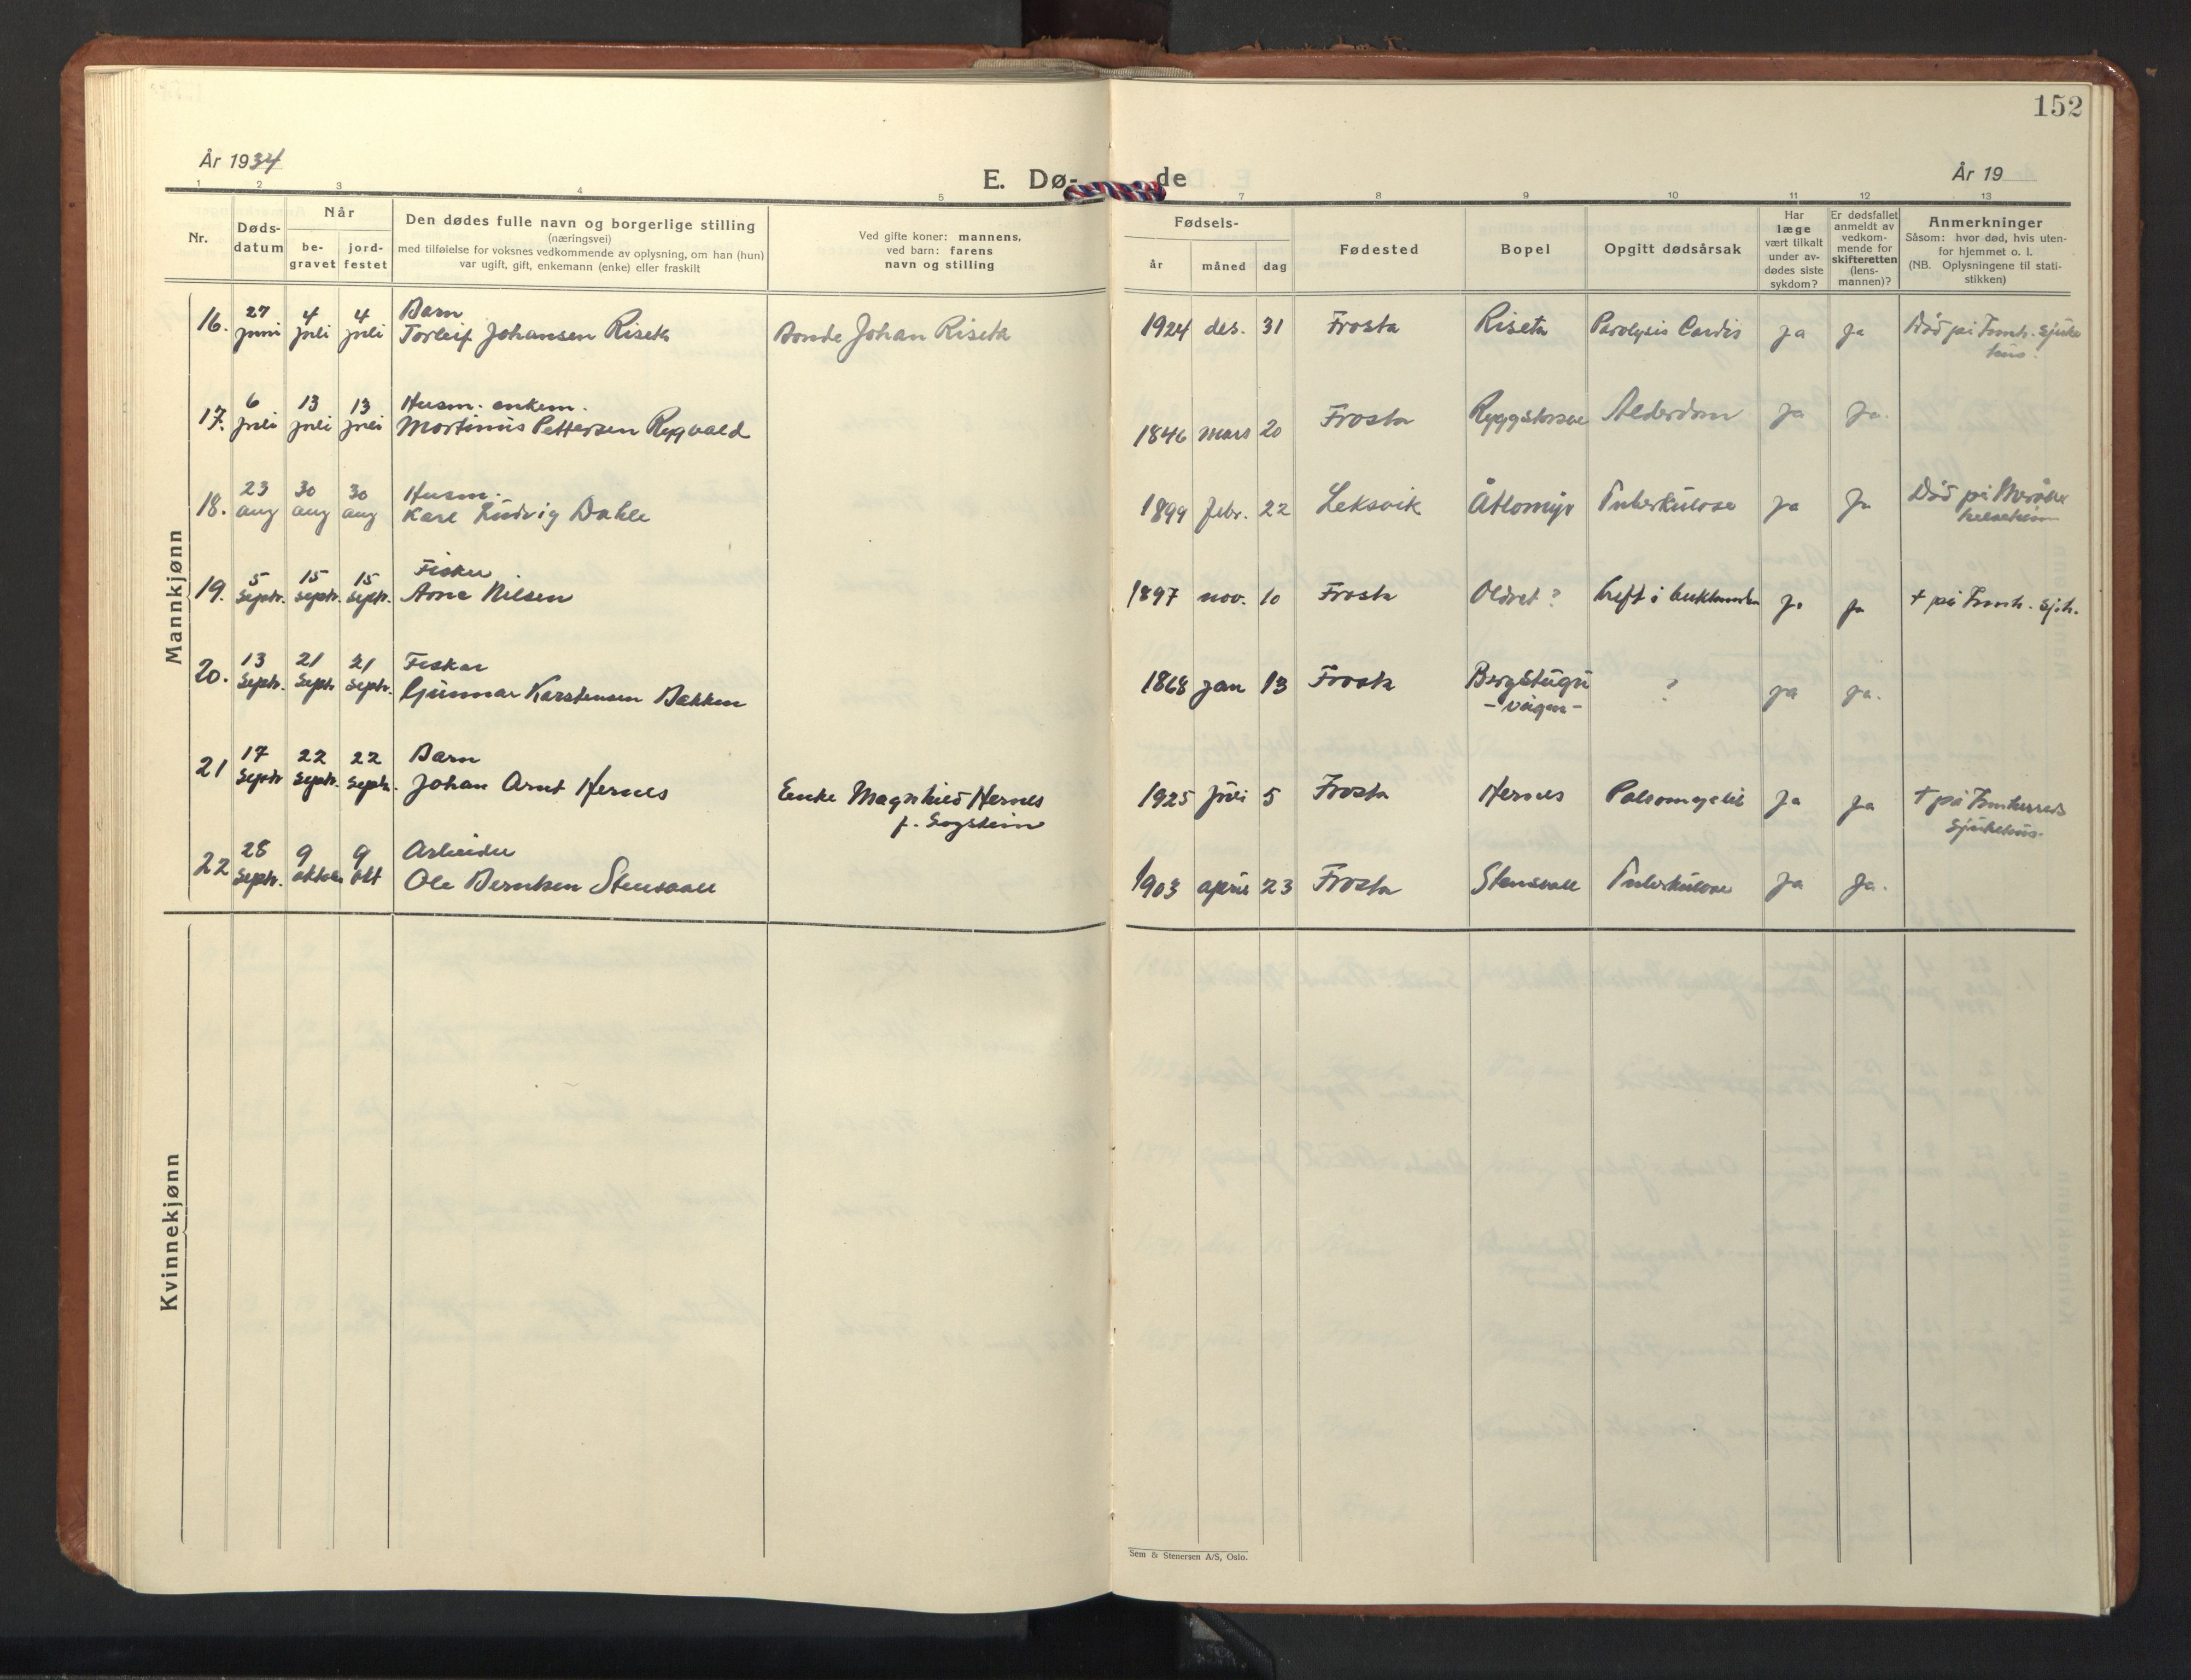 152
År 1934
E. Dø- de
År 19
1 2 3 4 5 7 8 9 10 11 12 13
Nr.
Døds-
datum
Når
be-
gravet
jord-
festet
Den dødes fulle navn og borgerlige stilling
(næringsvei)
med tilføielse for voksnes vedkommende av oplysning, om han (hun)
var ugift, gift, enkemann (enke) eller fraskilt
Ved gifte koner: mannens,
ved barn: farens
navn og stilling
Fødsels-
år måned dag
Fødested
Bopel
Opgitt dødsårsak
Har
læge
vært tilkalt
under av-
dødes siste
sykdom?
Er dødsfallet
anmeldt av
vedkom-
mende for
skifteretten
(lens-
mannen)?
Anmerkninger
Såsom: hvor død, hvis uten-
for hjemmet o. l.
(NB. Oplysningene til stati-
stikken)
Mannkjønn
27 4 4 Barn
16. juni juli juli Torleif Johansen Riseth Bonde Johan Riseth 1924 des. 31 Frosta Riseth Paralysis Cordis ja ja Død på Innh. sjuke
hus.
6 13 13 Husm. enkem.
17. juli juli juli Martinus Pettersen 1846 mars 20 Frosta Alderdom ja ja.
23 30 30 Husm.
18. aug aug aug Karl Ludvig Dahle 1899 febr. 22 Leksvik Tuberkulose ja ja Død på
5 15 15 Fisker
19. Septr. Septr. Septr. Arne Nilsen 1897 nov. 10 Frosta Oldret? kreft i ja ja + på Innh. sjh.
13 21 21 Fisker
20. Septr. Septr. Septr. Gunnar Karstensen Bakken 1868 jan 13 Frosta Bergstugu ? ja ja.
- vågen -
17 22 22 Barn
21 Septr Septr. Septr. Johan Arnt Hernes Enke Magnhild Hernes 1925 juli 5 Frosta Hernes ja ja + på Innherreds
f. Sjukehus.
28 9 9 Arbeider
22 Septr. oktober okt Ole Berntsen 1903 april 23 Frosta Tuberkulose ja ja.
Kvinnekjønn
Sem & Stenersen A/S, Oslo.